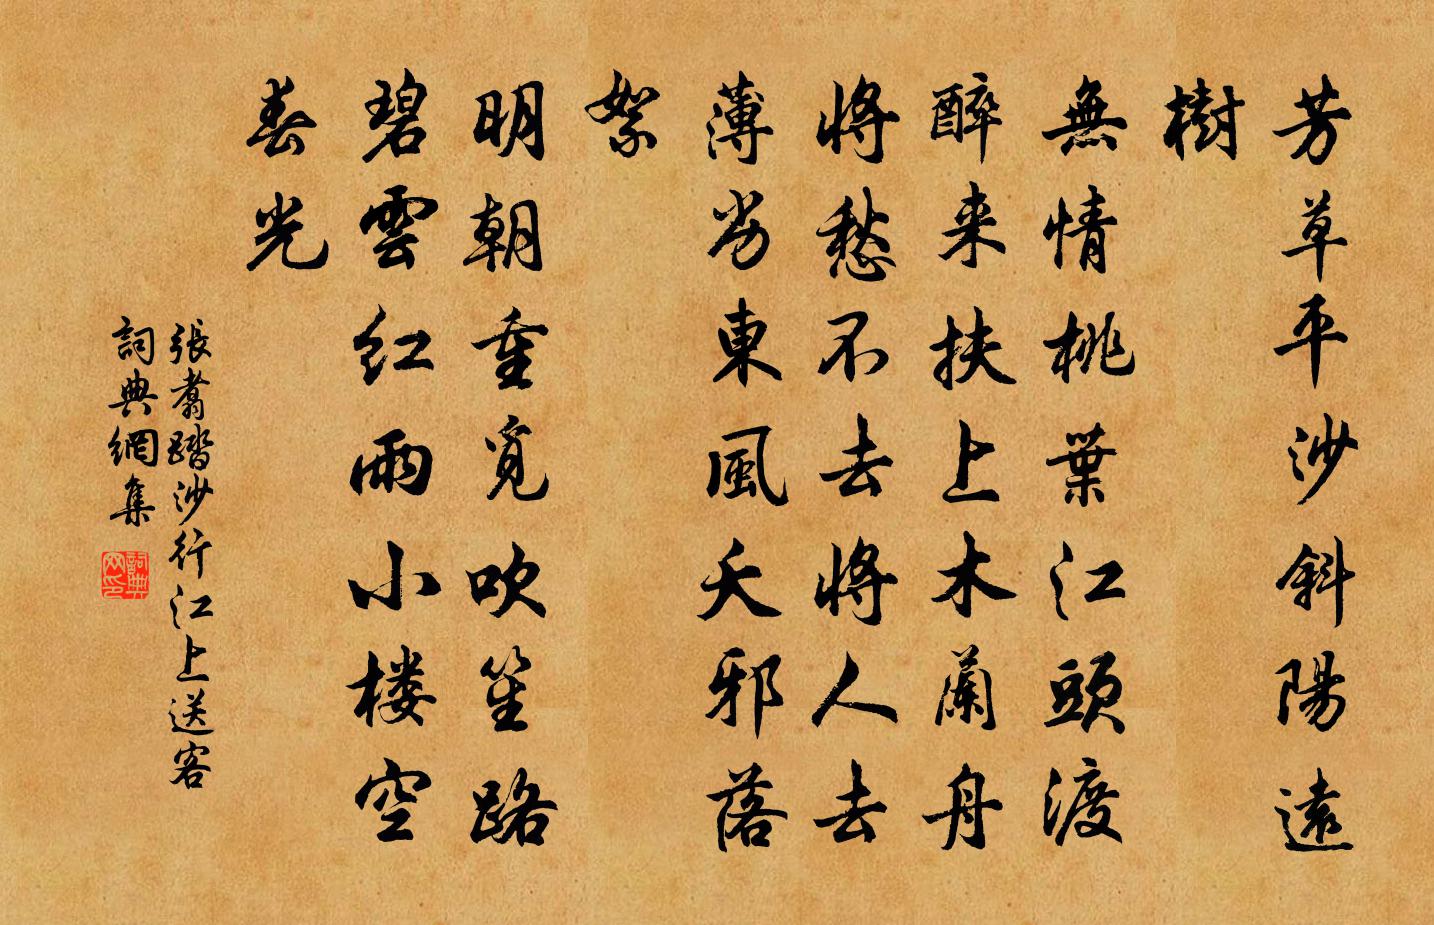 芳草平沙斜陽遠
樹
無情桃葉江頭渡
醉来扶上木蘭舟
将愁不去将人去
薄劣東風夭邪落
絮
明朝重覓吹笙路
碧雲红雨小楼空
春光
張翥踏沙行江上送客
詞典網集
詞典网印